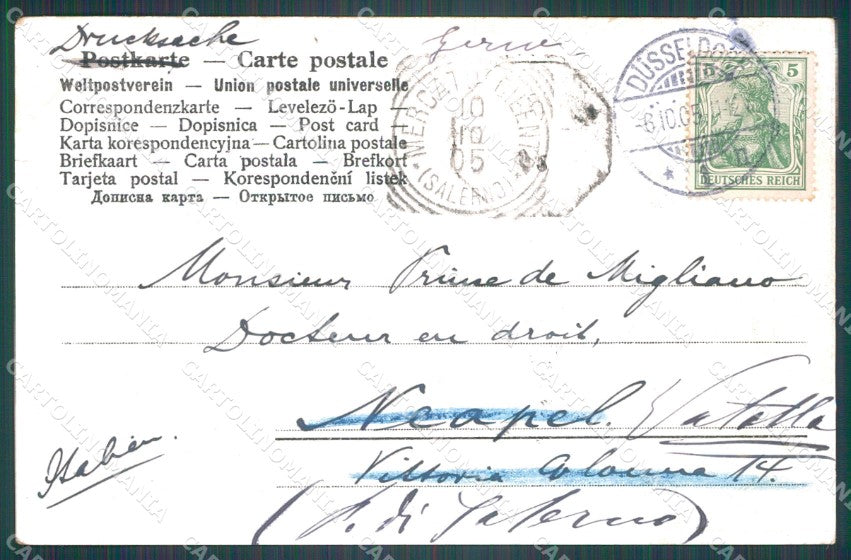 Drucksache
Postkarte — Carte postale
Weltpostverein — Union postale universelle
Correspondenzkarte — Levelező-Lap —
Dopisnice — Dopisnica — Post card
Karta korespondencyjna — Cartolina postale
Briefkaart — Carta postala — Brefkort
Tarjeta postal — Korespondenční listek
Дописна карта — Открытое письмо
(SALERNO)
10
10
05
DÜSSELDORF
6.10.05
5
DEUTSCHES REICH
Monsieur Prince de Migliano
Docteur en droit,
Neapel.
Vittoria Colonna 14.
(P. di Salerno)
Italien.
CARTOLINOMANIA